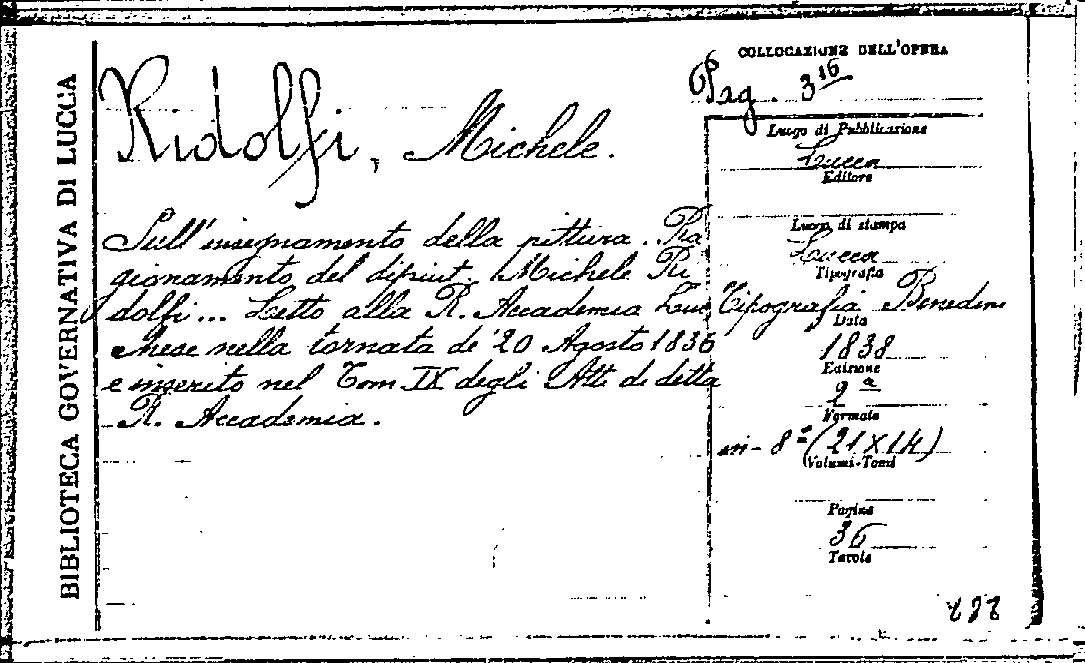 BIBLIOTECA GOVERNATIVA DI LUCCA
Ridolfi, Michele.
Sull'insegnamento della pittura. Ra
gionamento del dipint. Michele Ri
dolfi... Letto alla R. Accademia Luc
chese nella tornata de' 20 Agosto 1836
e inserito nel Tom IX degli Atti di detta
R. Accademia.
COLLOCAZIONE DELL'OPERA
Pag. 316
Luogo di Pubblicazione
Lucca
Editore
Luogo di stampa
Lucca
Tipografia
Tipografia Benedini
Data
1838
Edizione
2a
Formato
in-8° (21X14)
Volumi-Tomi
Pagine
36
Tavole